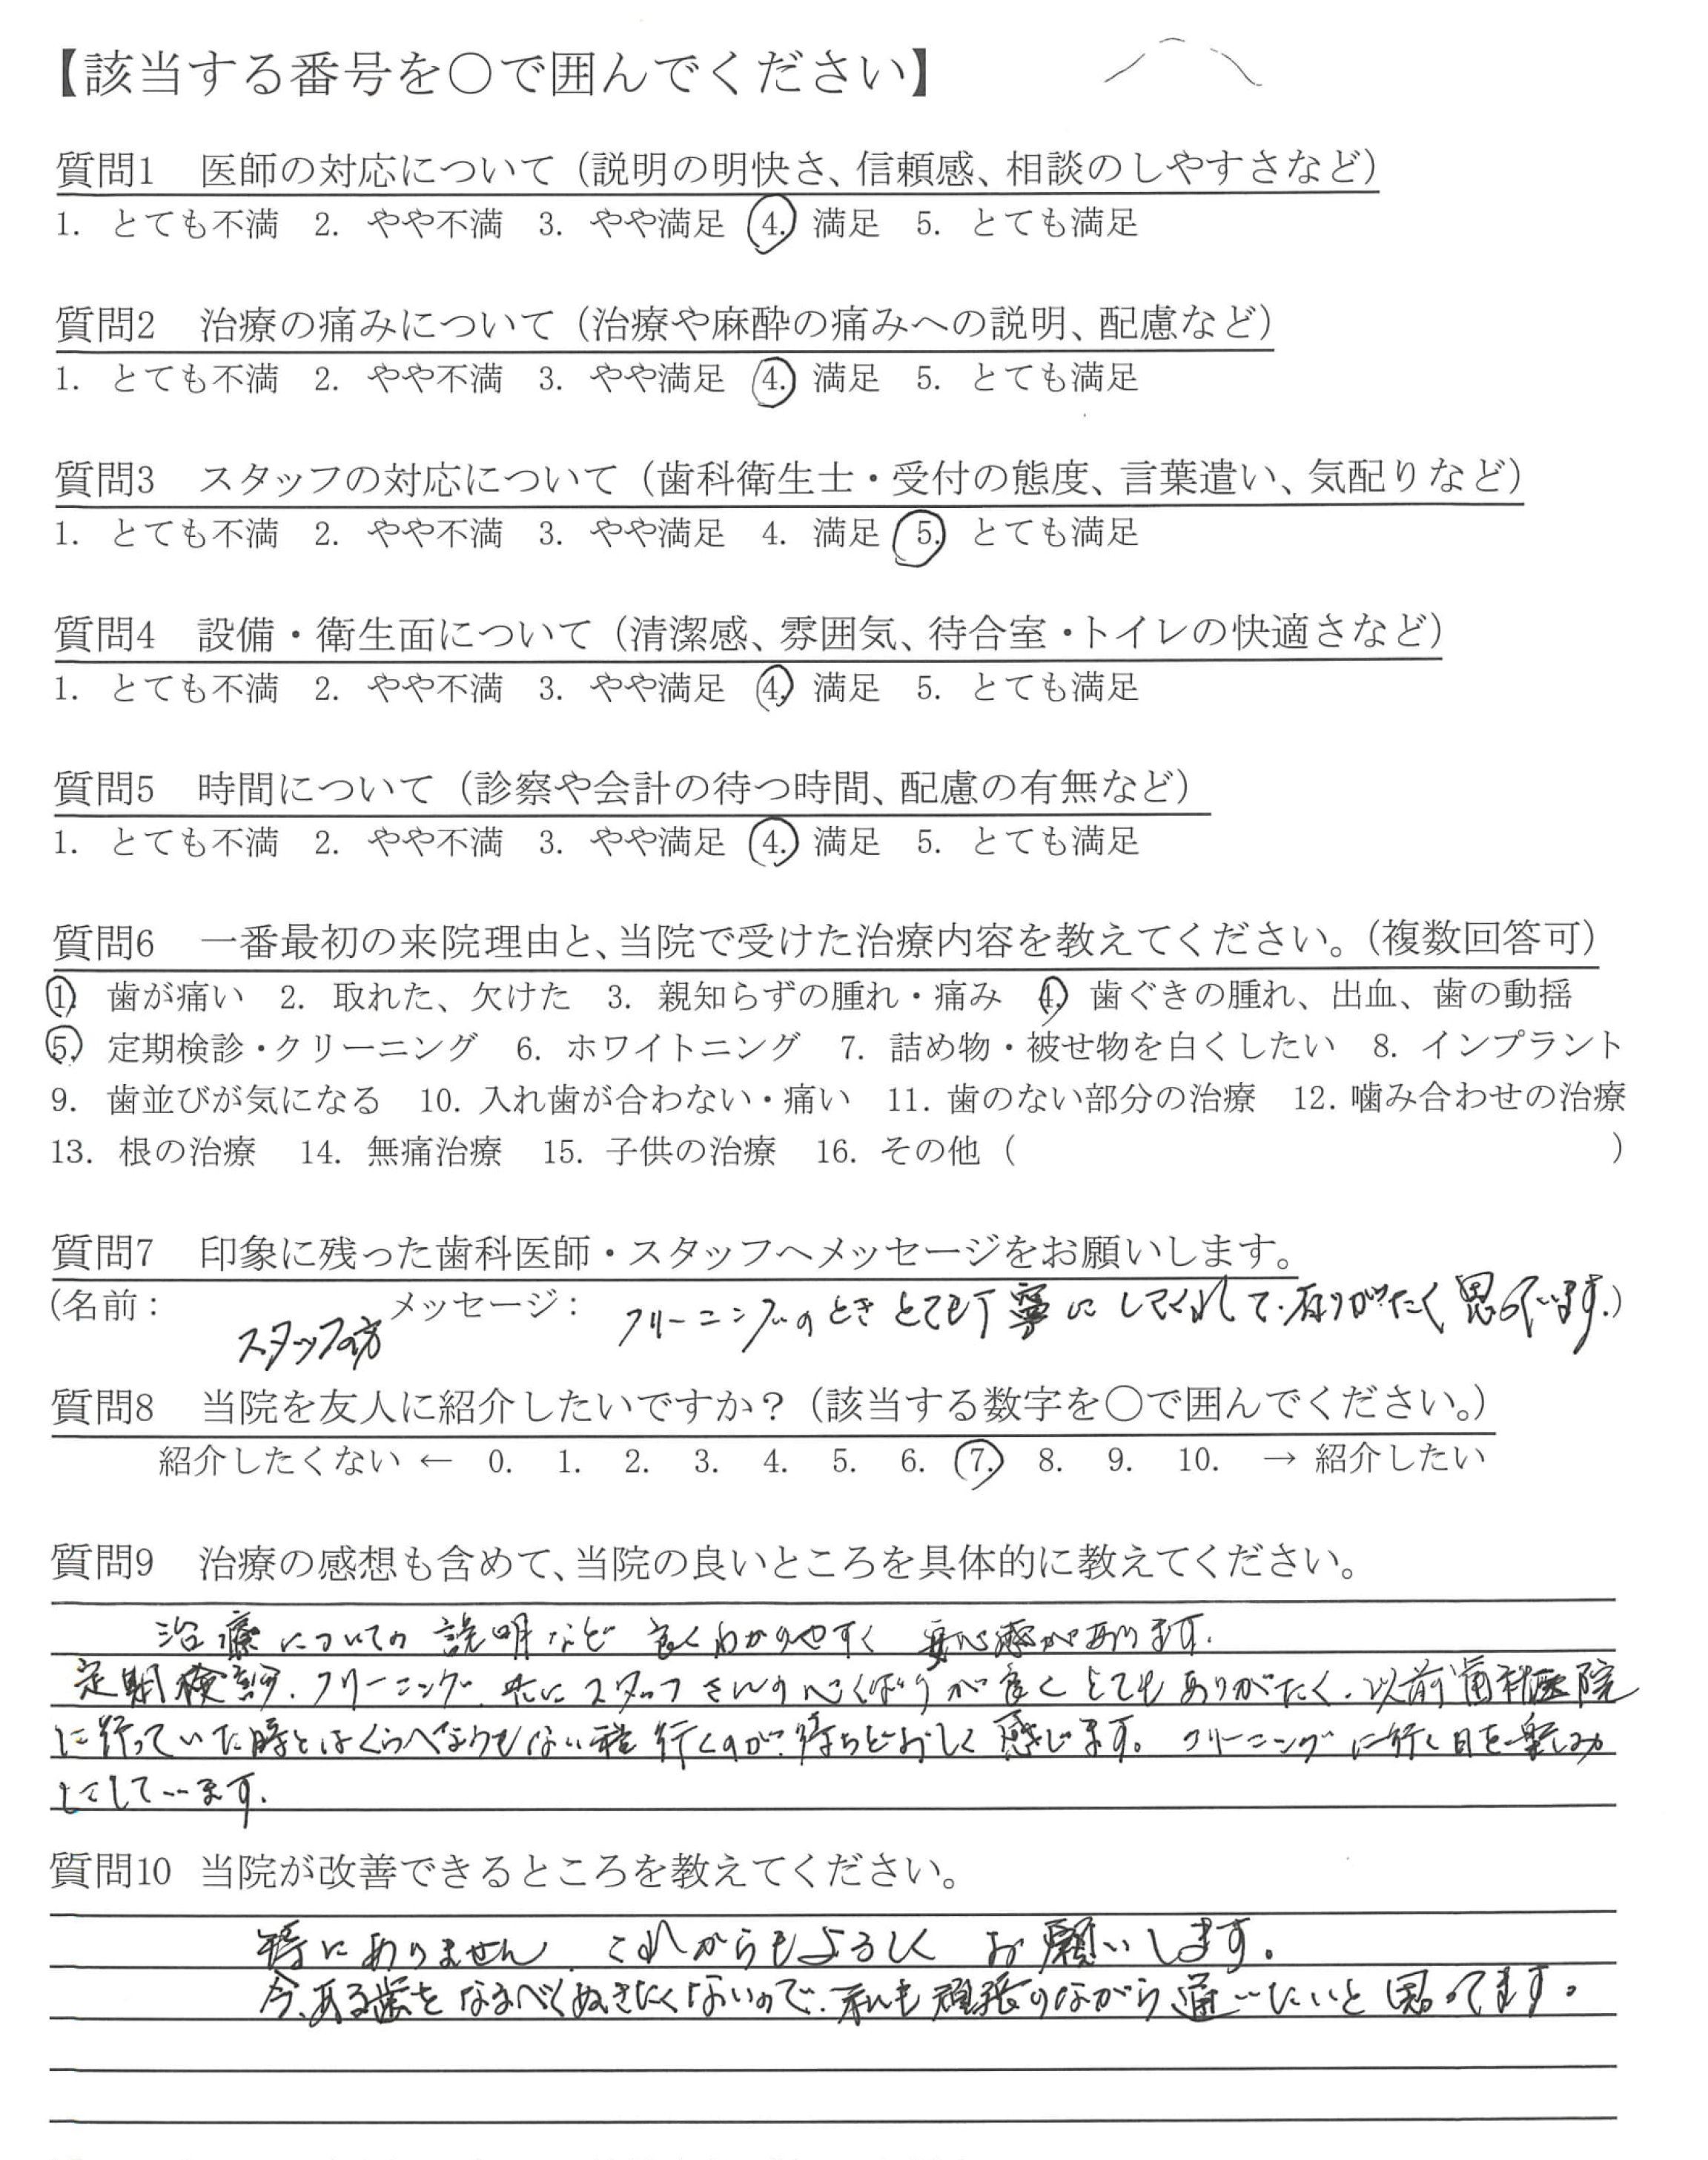 【該当する番号を○で囲んでください】
質問1 医師の対応について（説明の明快さ、信頼感、相談のしやすさなど）
1. とても不満 2. やや不満 3. やや満足 4. 満足 5. とても満足
質問2 治療の痛みについて（治療や麻酔の痛みへの説明、配慮など）
1. とても不満 2. やや不満 3. やや満足 4. 満足 5. とても満足
質問3 スタッフの対応について（歯科衛生士・受付の態度、言葉遣い、気配りなど）
1. とても不満 2. やや不満 3. やや満足 4. 満足 5. とても満足
質問4 設備・衛生面について（清潔感、雰囲気、待合室・トイレの快適さなど）
1. とても不満 2. やや不満 3. やや満足 4. 満足 5. とても満足
質問5 時間について（診察や会計の待つ時間、配慮の有無など）
1. とても不満 2. やや不満 3. やや満足 4. 満足 5. とても満足
質問6 一番最初の来院理由と、当院で受けた治療内容を教えてください。（複数回答可）
1. 歯が痛い 2. 取れた、欠けた 3. 親知らずの腫れ・痛み 4. 歯ぐきの腫れ、出血、歯の動揺
5. 定期検診・クリーニング 6. ホワイトニング 7. 詰め物・被せ物を白くしたい 8. インプラント
9. 歯並びが気になる 10. 入れ歯が合わない・痛い 11. 歯のない部分の治療 12. 噛み合わせの治療
13. 根の治療 14. 無痛治療 15. 子供の治療 16. その他（ ）
質問7 印象に残った歯科医師・スタッフへメッセージをお願いします。
（名前： スタッフの方 メッセージ： クリーニングのときとても丁寧にしてくれて、有りがたく思っています。）
質問8 当院を友人に紹介したいですか？（該当する数字を○で囲んでください。）
紹介したくない ← 0. 1. 2. 3. 4. 5. 6. 7. 8. 9. 10. → 紹介したい
質問9 治療の感想も含めて、当院の良いところを具体的に教えてください。
治療についての説明など良くわかりやすく安心感があります。
定期検診、クリーニング、共にスタッフさんの心くばりが良くとてもありがたく、以前歯科医院
に行っていた時とはくらべようもない程行くのが待ちどおしく感じます。クリーニングに行く日を楽しみ
にしています。
質問10 当院が改善できるところを教えてください。
特にありません。これからもよろしくお願いします。
今、ある歯をなるべくぬきたくないので、私も頑張りながら通いたいと思ってます。